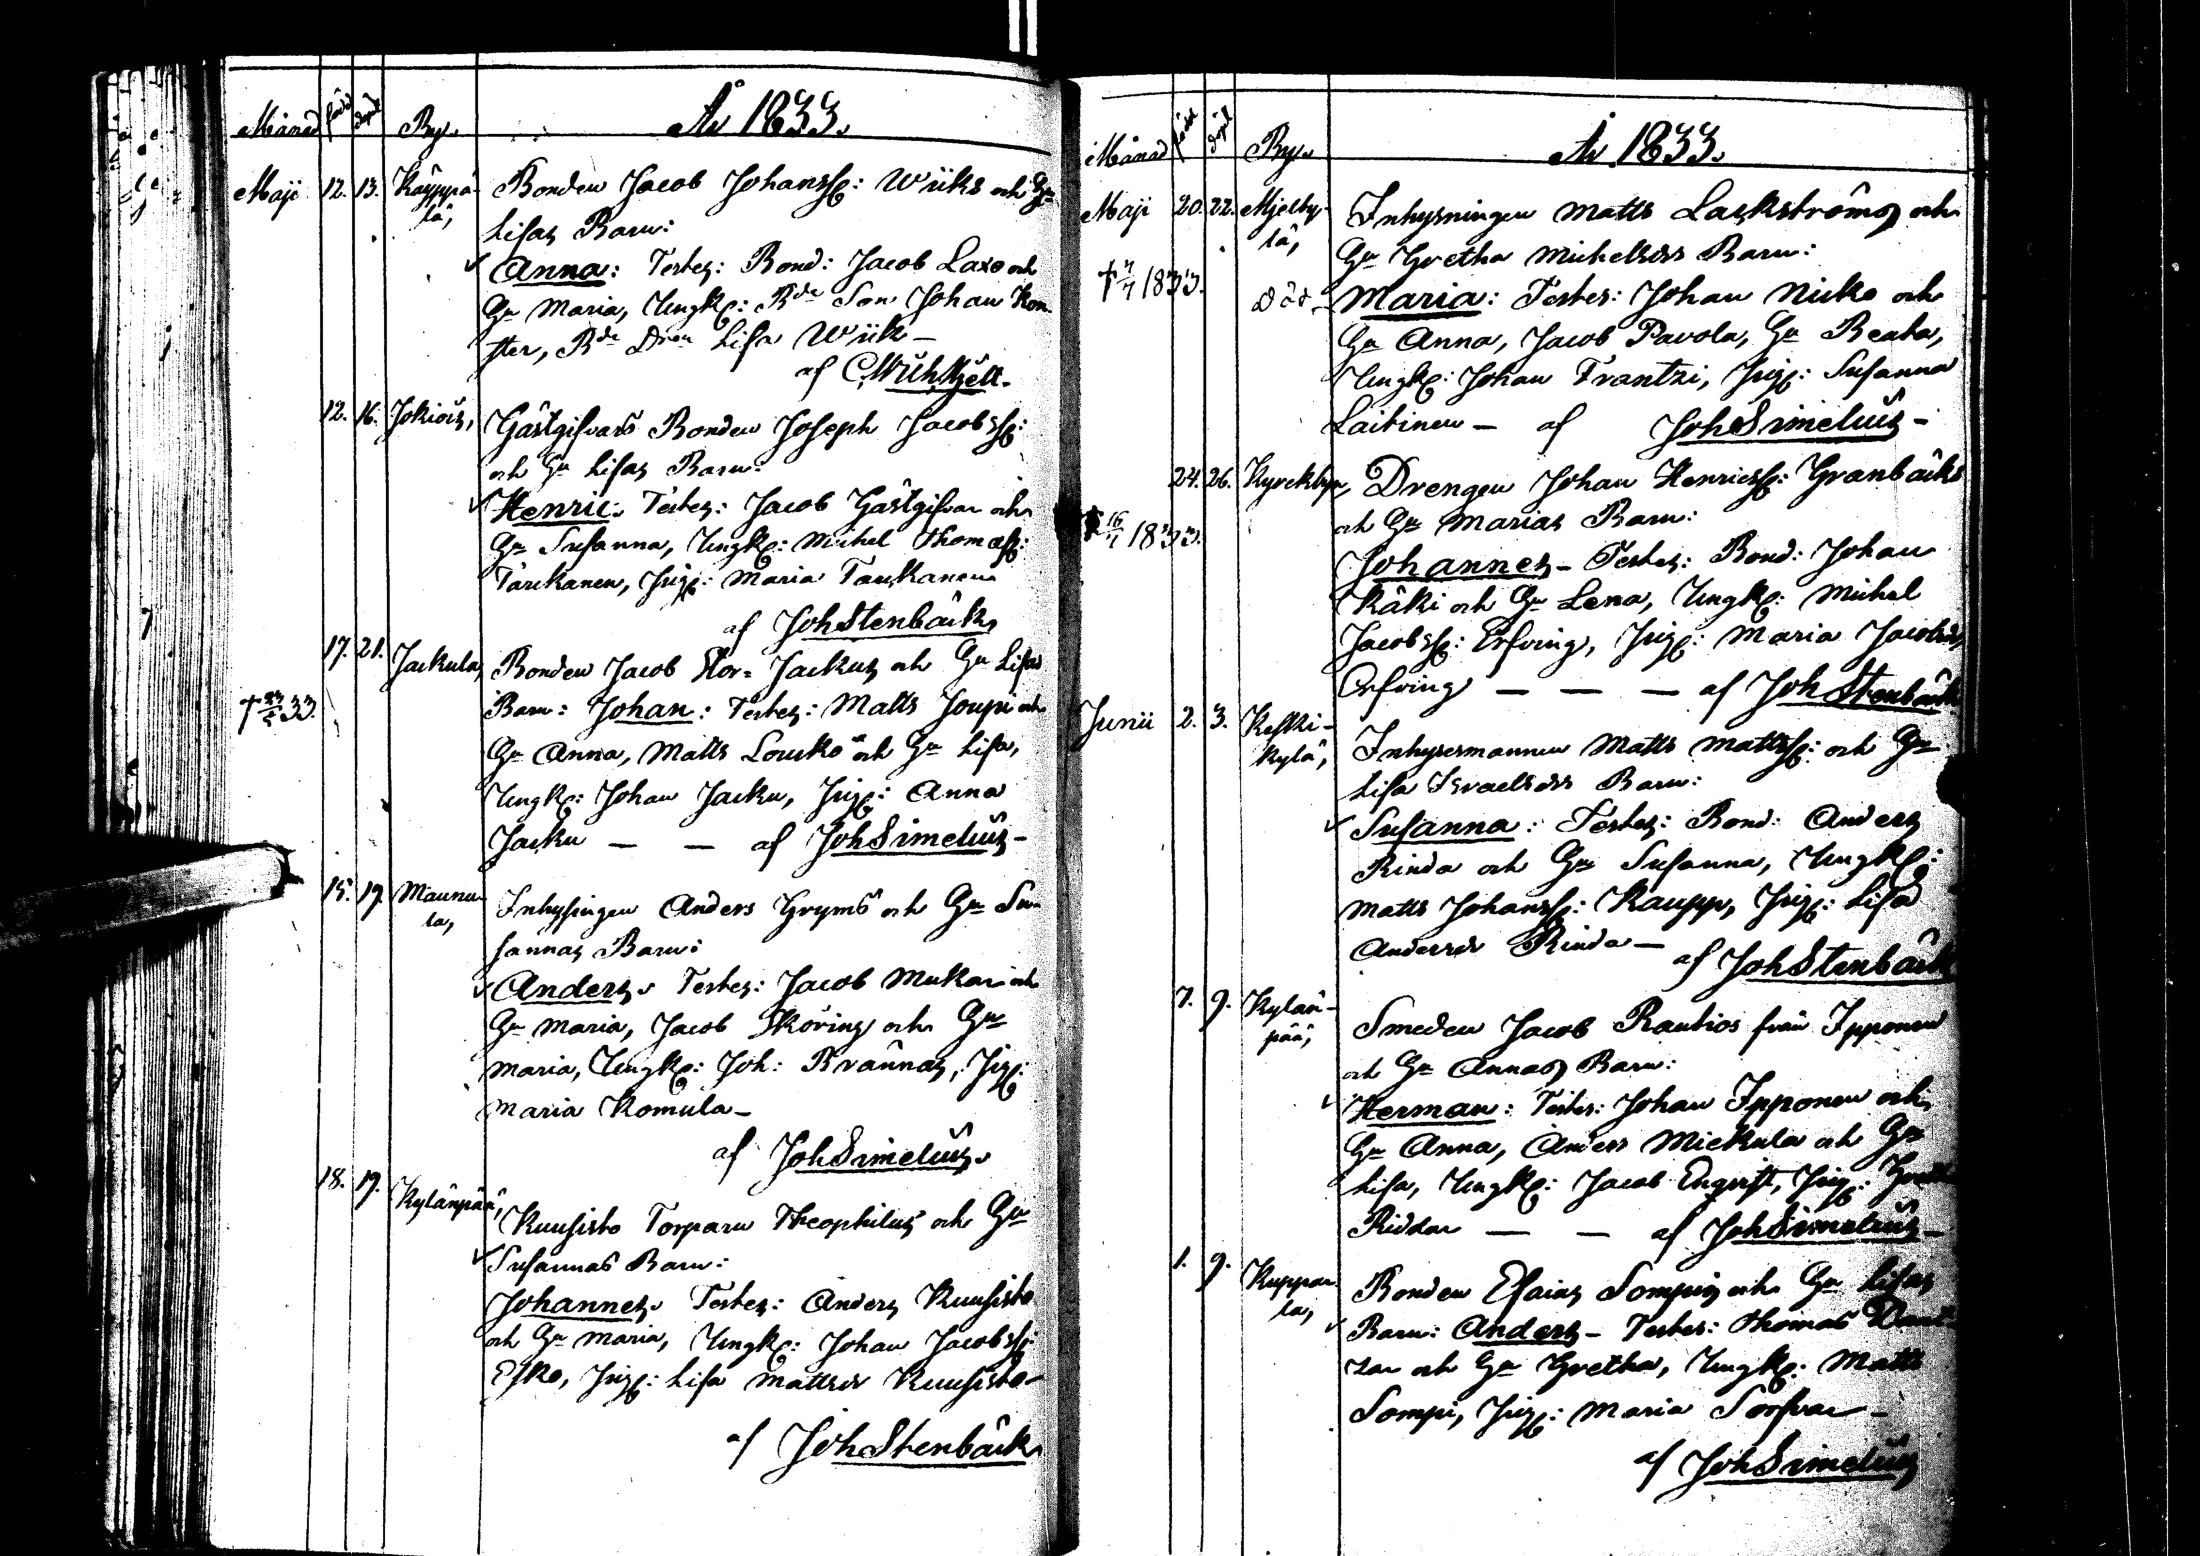 Månad född döpt By. År 1833.
Maji 12. 13. Käyppä- Bonden Jacob Johanss: Wiiks och Hu
lä, Lisas Barn:
Anna: Testes: Bond: Jacob Laxo och
Hu Maria, Ungk: Bde Son Johan Kon-
ster, Bde Dren Lisa Wiik –
af C. Wichkjell.
12. 16. Jokiois, Gästgifvars Bonden Joseph Jacobss:
och Hu Lisas Barn:
Henric. Testes: Jacob Gästgifvar och
Hu Susanna, Ungk: Michel Thomass:
Tarkanen, Pig: Maria Taukanen
af Joh Stenbäck,
17. 21. Jackula, Bonden Jacob Stor-Jackus och Hu Lisas
† 33. Barn: Johan: Testes: Matts Joupi och
Hu Anna, Matts Lousko och Hu Lisa,
Ungk: Johan Jacku, Pig: Anna
Jacku — — af Joh Simelius –
15. 19. Maunu- Inhysingen Anders Gryms och Hu Su-
la, sannas Barn:
Anders. Testes: Jacob Mukari och
Hu Maria, Jacob Sköring och Hu
Maria, Ungk: Joh: Brännas, Pig:
Maria Romula –
af Joh Simelius.
18. 19. Kylänpää, Kuusisto Torparn Theophilus och Hu
Susannas Barn:
Johannes. Testes: Anders Kuusisto
och Hu Maria, Ungk: Johan Jacobss:
Esko, Pig: Lisa Mattsdr Kuusisto –
af Joh Stenbäck
Månad född döpt By. År 1833.
Maji 20. 22. Mjelby- Inhysningen Matts Lackströms och
lä, Hu Gretha Michelsdrs Barn:
† 1833. Död – Maria: Testes: Johan Nicko och
Hu Anna, Jacob Pavola, Hu Beata,
Ungk: Johan Frantzi, Pig: Susanna
Laitinen – af Joh Simelius –
24. 26. Kyrckbyn, Drengen Johan Henricss: Granbäcks
och Hu Marias Barn:
† 16/7 1833. Johannes – Testes: Bond: Johan
Käki och Hu Lena, Ungk: Michel
Jacobss: Erfving, Pig: Maria Jacobsdr,
Erfving — — — af Joh Stenbäck
Junii 2. 3. Keski- Inhysesmannen Matts Mattss: och Hu
kylä, Lisa Israelsdrs Barn:
Susanna: Testes: Bond: Anders
Rinda och Hu Susanna, Ungk:
Matts Johanss: Kaupp, Pig: Lisa
Andersdr Rinda — af Joh Stenbäck
7. 9. Kylän- Smeden Jacob Rautios från Ipponen
pää, och Hu Annas Barn:
Herman: Testes: Johan Ipponen och
Hu Anna, Anders Mickula och Hu
Lisa, Ungk: Jacob Engvist, Pig: Gretha
Riddar — — af Joh Simelius –
1. 9. Kuppar- Bonden Esaias Sompis och Hu Lisas
la, Barn: Anders – Testes: Thomas
och Hu Gretha, Ungk: Matts
Sompi, Pig: Maria Sorfvar –
af Joh Simelius